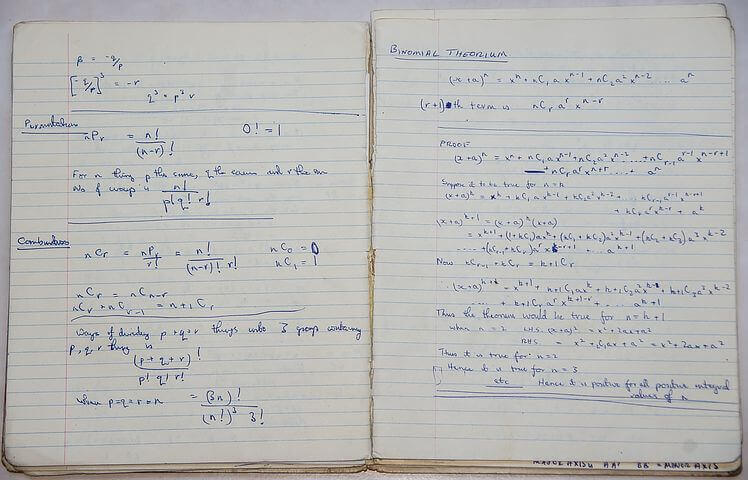 β = -q/p
[-q/p]³ = -r
q³ = p³ r
Permutations
nPr = n!/(n-r)!    0! = 1
For n things p the same, q the same and r the same
No of ways is n!/(p! q! r!)
Combinations
nCr = nPr/r! = n!/((n-r)! r!)    nC0 = 0
nC1 = 1
nCr = nCn-r
nCr + nCr-1 = n+1Cr
Ways of dividing p+q+r things into 3 groups containing
p, q, r things is
(p+q+r)!/(p! q! r!)
when p=q=r=n = (3n)!/((n!)³ 3!)
BINOMIAL THEORIUM
(x+a)ⁿ = xⁿ + nC1 a xⁿ⁻¹ + nC2 a² xⁿ⁻² ... aⁿ
(r+1)th term is nCr aʳ xⁿ⁻ʳ
PROOF
(x+a)ⁿ = xⁿ + nC1 a xⁿ⁻¹ + nC2 a² xⁿ⁻² ... + nCr-1 aʳ⁻¹ xⁿ⁻ʳ⁺¹
+ nCr aʳ xⁿ⁺ʳ ... + aⁿ
Suppose it to be true for n = k
(x+a)ᵏ = xᵏ + kC1 a xᵏ⁻¹ + kC2 a² xᵏ⁻² ... + kCr-1 aʳ⁻¹ xᵏ⁻ʳ⁺¹
+ kCr aʳ xᵏ⁻ʳ + aᵏ
(x+a)ᵏ⁺¹ = (x+a)ᵏ (x+a)
= xᵏ⁺¹ + (1+kC1) a xᵏ + (kC1+kC2) a² xᵏ⁻¹ + (kC2+kC3) a³ xᵏ⁻²
... + (kCr-1 + kCr) aʳ xᵏ⁻ʳ⁺¹ ... aᵏ⁺¹
Now kCr-1 + kCr = k+1Cr
(x+a)ᵏ⁺¹ = xᵏ⁺¹ + k+1C1 a xᵏ + k+1C2 a² xᵏ⁻¹ + k+1C3 a³ xᵏ⁻²
... + k+1Cr aʳ xᵏ⁺¹⁻ʳ + ... aᵏ⁺¹
Thus the theorem would be true for n = k+1
when n = 2 LHS. (x+a)² = x² + 2ax + a²
RHS. = x² + 2C1 ax + a² = x² + 2ax + a²
Thus it is true for n = 2
Hence it is true for n = 3
etc Hence it is positive for all positive integral
values of n
MAJOR AXIS AA' BB' = MINOR AXIS